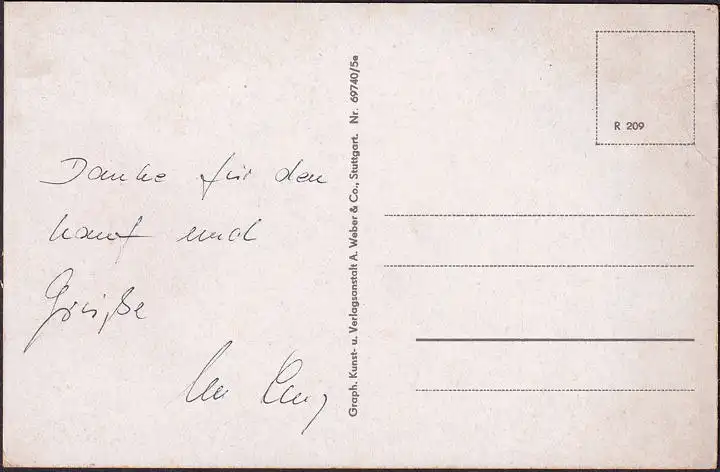 Danke für den
kauf und
Grüße
Graph. Kunst- u. Verlagsanstalt A. Weber & Co., Stuttgart. Nr. 69740/5e
R 209